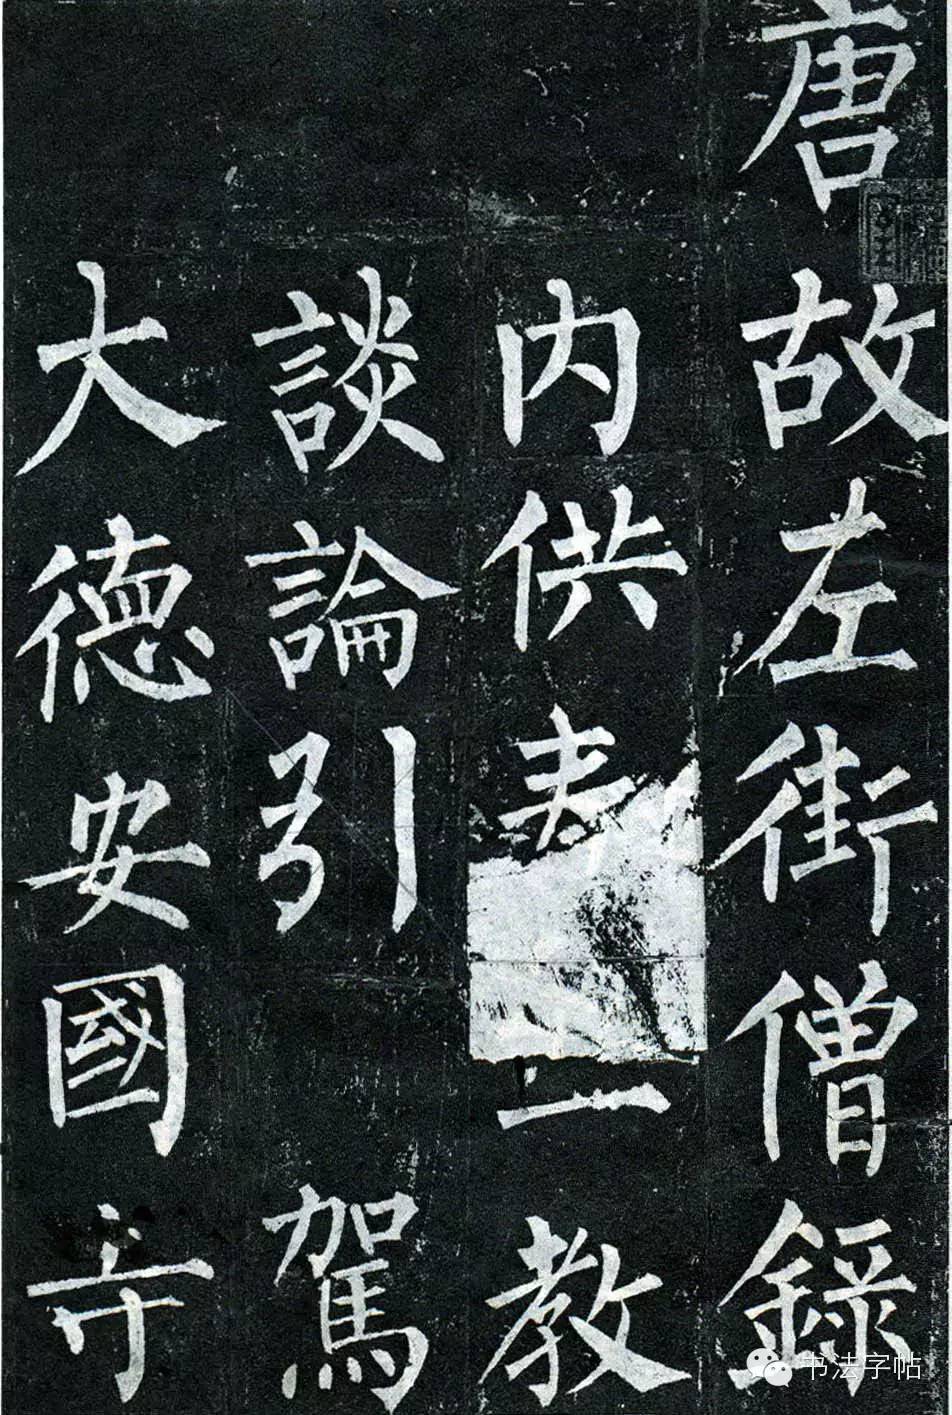 唐故左街僧錄
内供奉一教
談論引駕
大德安國寺
书法字帖